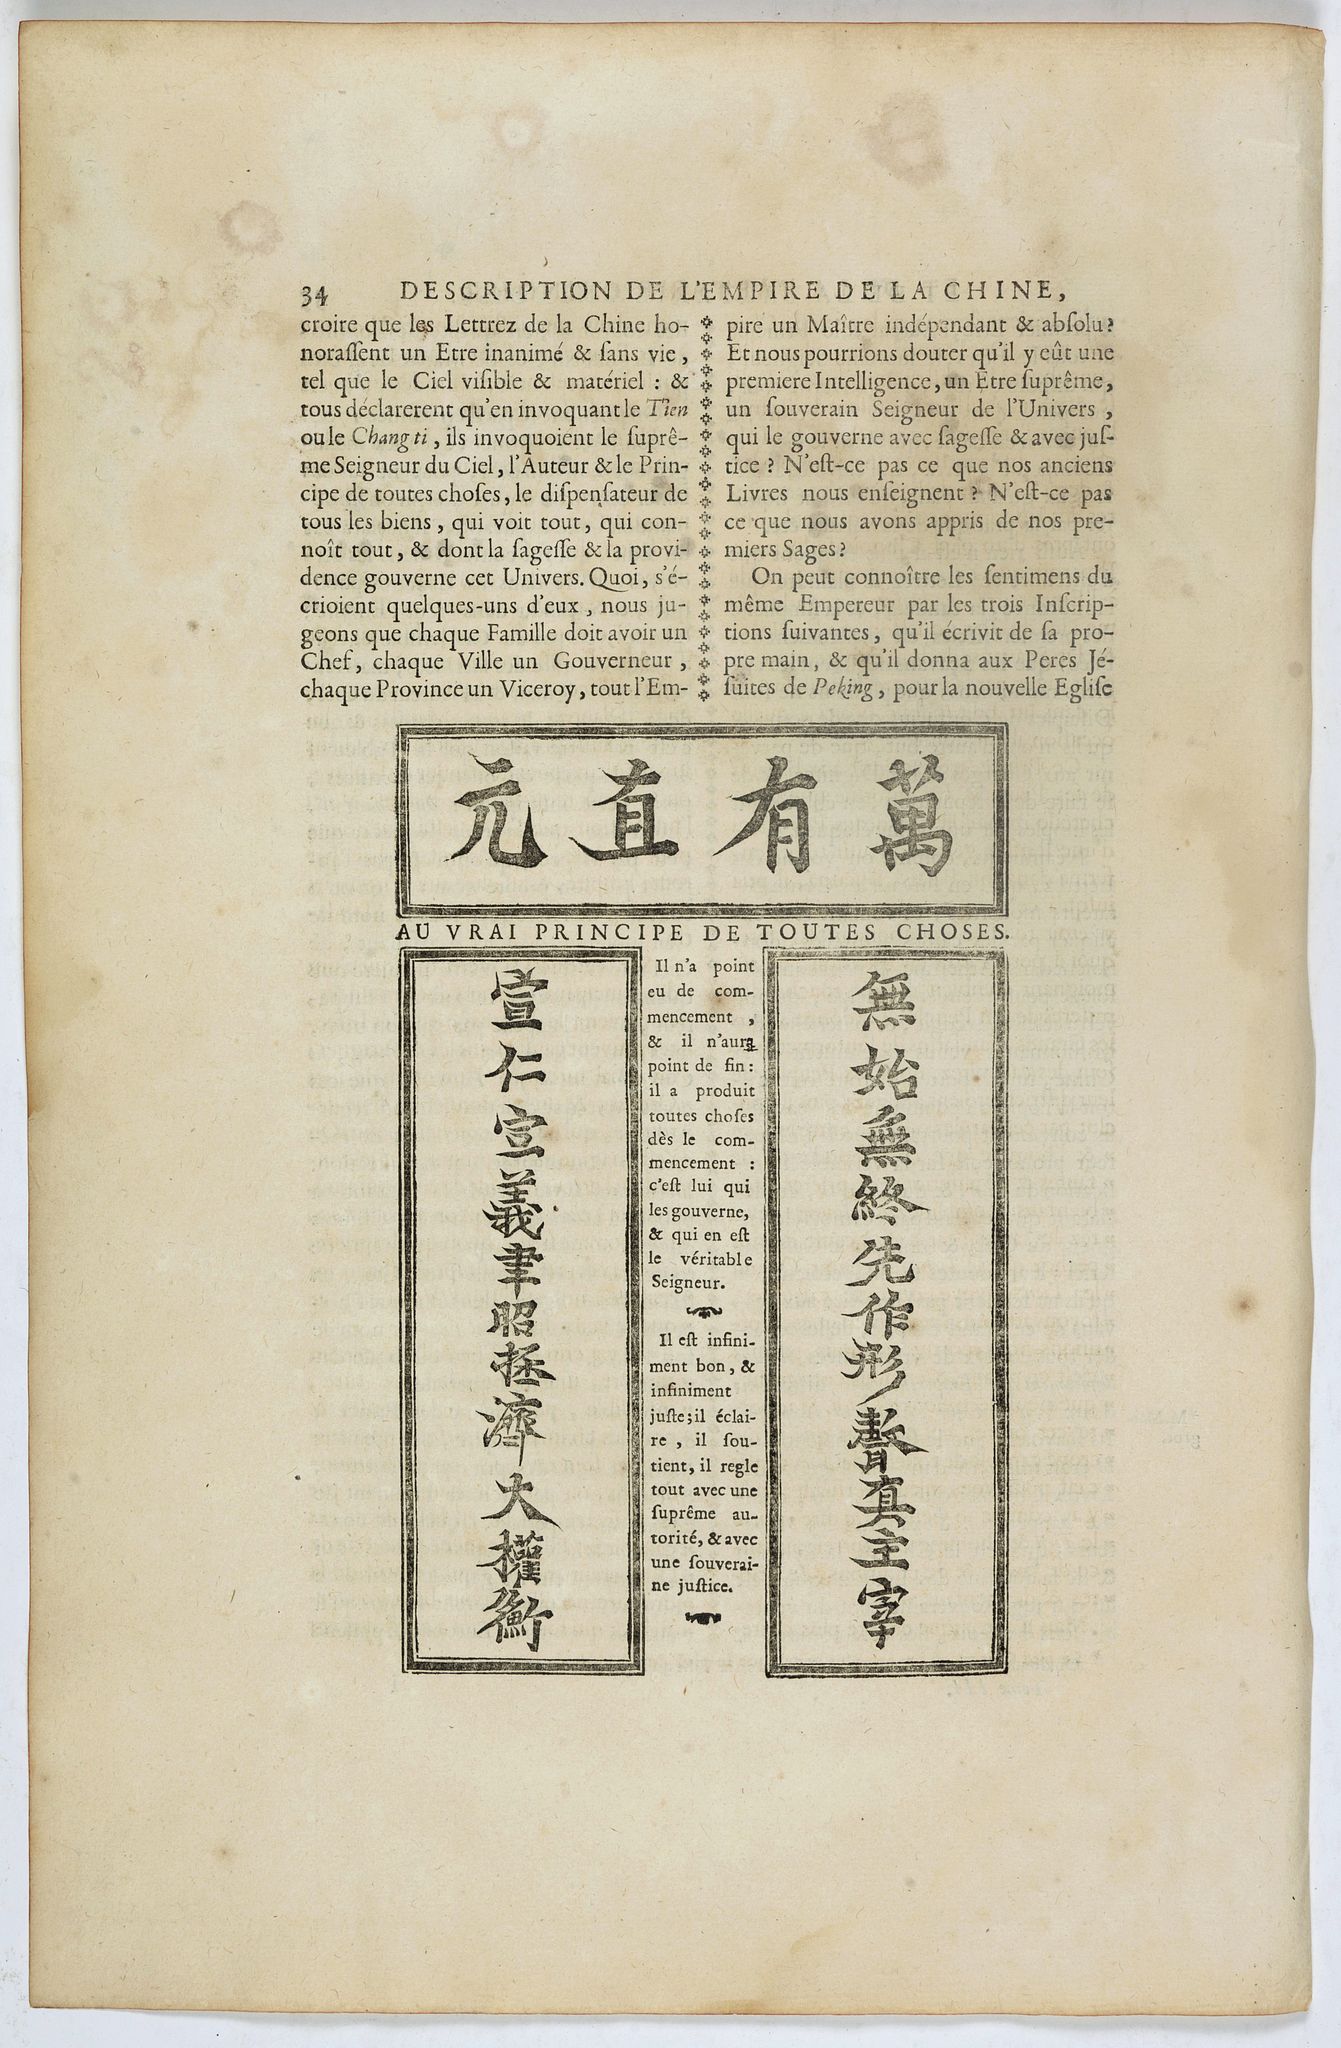 34 DESCRIPTION DE L'EMPIRE DE LA CHINE,
croire que les Lettrez de la Chine ho-
noraſſent un Etre inanimé & ſans vie,
tel que le Ciel viſible & matériel : &
tous déclarerent qu'en invoquant le Tien
ou le Chang ti, ils invoquoient le ſuprê-
me Seigneur du Ciel, l'Auteur & le Prin-
cipe de toutes choſes, le diſpenſateur de
tous les biens, qui voit tout, qui con-
noît tout, & dont la ſageſſe & la provi-
dence gouverne cet Univers. Quoi, s'é-
crioient quelques-uns d'eux, nous ju-
geons que chaque Famille doit avoir un
Chef, chaque Ville un Gouverneur,
chaque Province un Viceroy, tout l'Em-
pire un Maître indépendant & abſolu?
Et nous pourrions douter qu'il y eût une
premiere Intelligence, un Etre ſuprême,
un ſouverain Seigneur de l'Univers,
qui le gouverne avec ſageſſe & avec juſ-
tice ? N'eſt-ce pas ce que nos anciens
Livres nous enſeignent ? N'eſt-ce pas
ce que nous avons appris de nos pre-
miers Sages?
On peut connoître les ſentimens du
même Empereur par les trois Inſcrip-
tions ſuivantes, qu'il écrivit de ſa pro-
pre main, & qu'il donna aux Peres Jé-
ſuites de Peking, pour la nouvelle Egliſe
萬有直元
AU VRAI PRINCIPE DE TOUTES CHOSES.
無始無終先作形聲真主宰
Il n'a point
eu de com-
mencement,
& il n'aura
point de fin:
il a produit
toutes choſes
dès le com-
mencement :
c'eſt lui qui
les gouverne,
& qui en eſt
le véritable
Seigneur.
Il eſt infini-
ment bon, &
infiniment
juſte; il éclai-
re, il ſou-
tient, il regle
tout avec une
ſuprême au-
torité, & avec
une ſouverai-
ne juſtice.
宣仁宣義聿昭拯濟大權衡